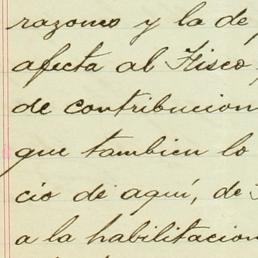 razones y la de
afecta al Fisco
de contribucion
que tambien lo
cio de aquí, de
a la habilitacion